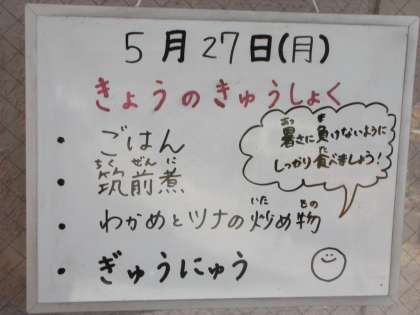 5月27日(月)
きょうのきゅうしょく
・ごはん
ちくぜんに
・筑前煮
いた もの
・わかめとツナの炒め物
・ぎゅうにゅう
あつ ま
暑さに負けないように
た
しっかり食べましょう!